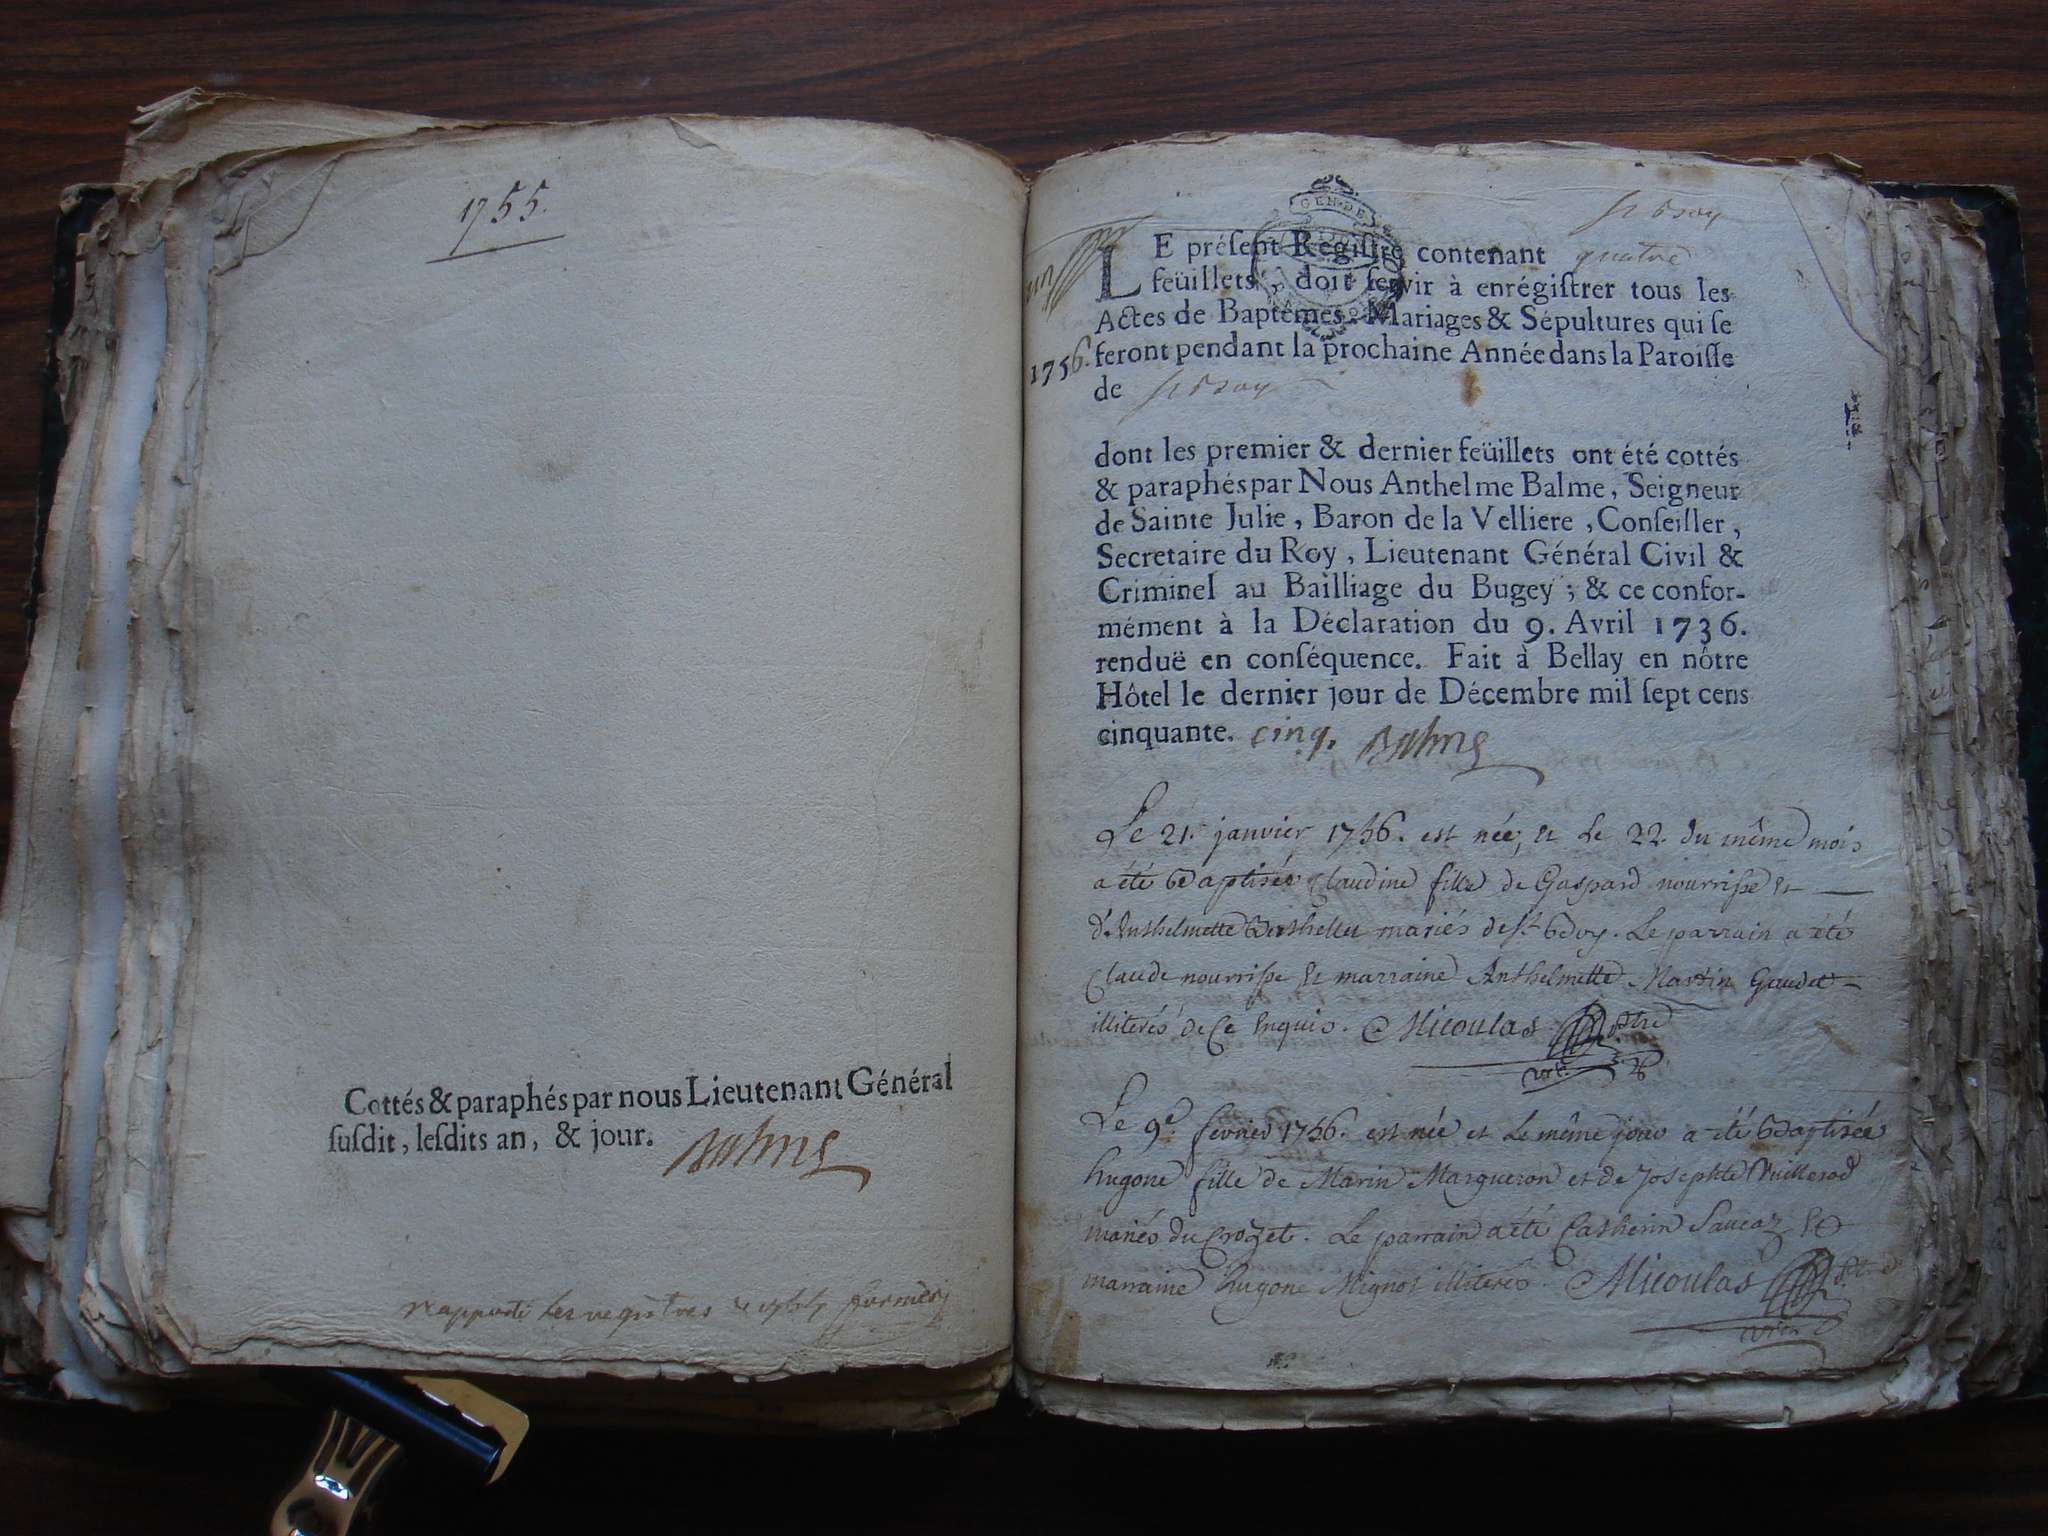 1755.
Cottés & paraphés par nous Lieutenant Général
susdit, lesdits an, & jour. Balme
rapporté les registres
GEN·DE
St Bdoy
LE préſent Regiſtre contenant quatre
feüillets, doit ſervir à enrégiſtrer tous les
Actes de Baptêmes, Mariages & Sépultures qui ſe
1756. feront pendant la prochaine Année dans la Paroiſſe
de St Bdoy
dont les premier & dernier feüillets ont été cottés
& paraphés par Nous Anthelme Balme, Seigneur
de Sainte Julie, Baron de la Velliere, Conſeiller,
Secretaire du Roy, Lieutenant Général Civil &
Criminel au Bailliage du Bugey; & ce confor-
mément à la Déclaration du 9. Avril 1736.
renduë en conſéquence. Fait à Bellay en nôtre
Hôtel le dernier jour de Décembre mil ſept cens
cinquante. cinq. Balme
Le 21. janvier 1756. est née, et le 22. du même mois
a été bdaptisée Claudine fille de Gaspard nourrisse et
d'Anthelmette Berthellet mariés de St bdoy. Le parrain a été
Claude nourrisse et marraine Anthelmette Martin Gaudet
illiterés de ce enquis. Micoulas ptre
vic.
Le 9e fevrier 1756. est née et le même jour a été bdaptisée
hugone fille de Marin Marqueron et de Josephte Vuillerod
mariés du Crozet. Le parrain a été Catherin Saucaz et
marraine hugone Mignot illiterés. Micoulas ptre
vic.